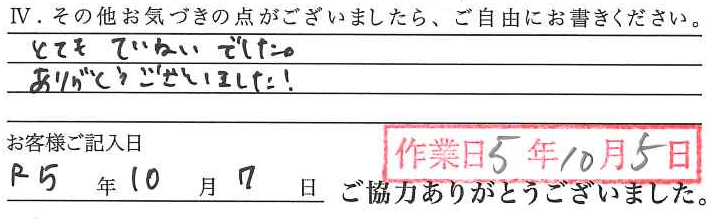 Ⅳ.その他お気づきの点がございましたら、ご自由にお書きください。
とても ていねい でした。
ありがとうございました!
お客様ご記入日
作業日5年10月5日
R5 年 10 月 7 日
ご協力ありがとうございました。